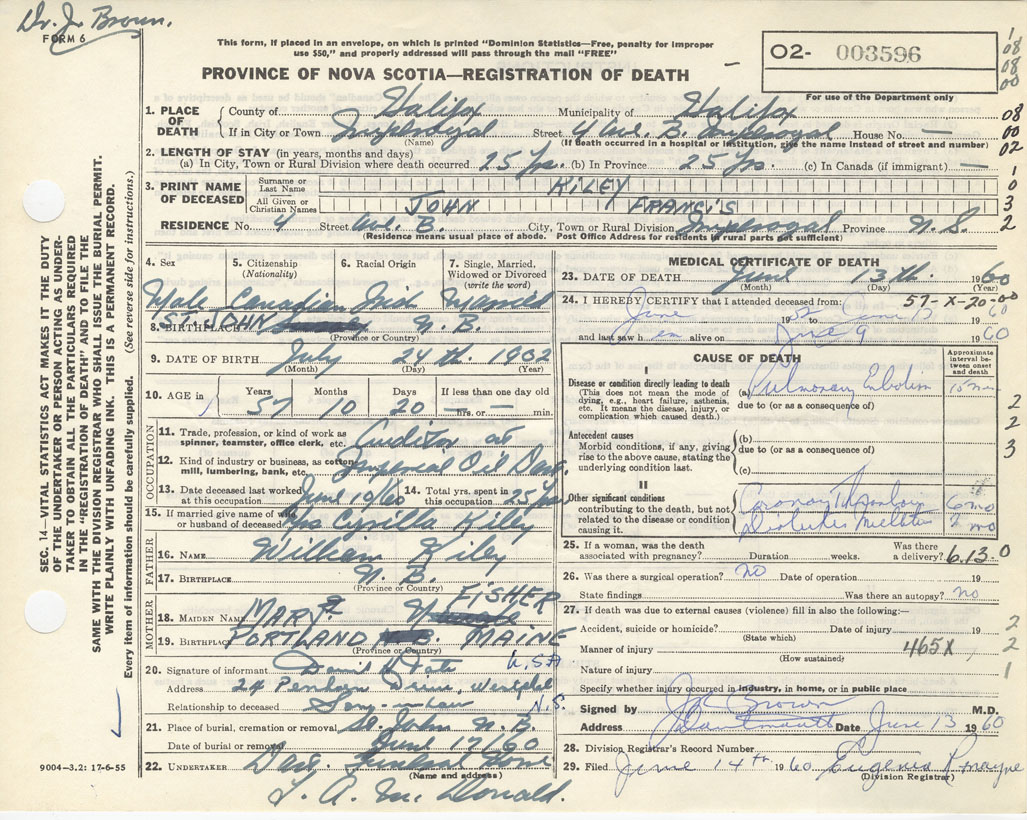 Dr. J. Brown.
FORM 6
This form, if placed in an envelope, on which is printed "Dominion Statistics—Free, penalty for improper
use $50," and properly addressed will pass through the mail "FREE"
PROVINCE OF NOVA SCOTIA—REGISTRATION OF DEATH
O2- 003596
For use of the Department only
1
08
08
00
1. PLACE OF DEATH
County of Halifax Municipality of Halifax
08
If in City or Town Imperoyal Street 4 Ave. B. Imperoyal House No. —
00
(Name) (If death occurred in a hospital or institution, give the name instead of street and number)
02
2. LENGTH OF STAY (in years, months and days)
(a) In City, Town or Rural Division where death occurred 25 Yrs. (b) In Province 25 Yrs (c) In Canada (if immigrant) —
3. PRINT NAME OF DECEASED
Surname or Last Name KILEY
1
0
All Given or Christian Names JOHN FRANCIS
3
RESIDENCE No. 4 Street Ave. B. City, Town or Rural Division Imperoyal Province N.S.
2
(Residence means usual place of abode. Post Office Address for residents in rural parts not sufficient)
SEC. 14—VITAL STATISTICS ACT MAKES IT THE DUTY
OF THE UNDERTAKER OR PERSON ACTING AS UNDER-
TAKER TO OBTAIN ALL THE PARTICULARS REQUIRED
IN THE "REGISTRATION OF DEATH" AND TO FILE THE
SAME WITH THE DIVISION REGISTRAR WHO SHALL ISSUE THE BURIAL PERMIT.
WRITE PLAINLY WITH UNFADING INK. THIS IS A PERMANENT RECORD.
Every item of information should be carefully supplied. (See reverse side for instructions.)
4. Sex
5. Citizenship (Nationality)
6. Racial Origin
7. Single, Married, Widowed or Divorced (write the word)
Male Canadian Irish Married
8. BIRTHPLACE ST. JOHN N.B.
(Province or Country)
9. DATE OF BIRTH July 24th. 1902
(Month) (Day) (Year)
10. AGE in
Years Months Days If less than one day old
57 10 20 — hrs. or — min.
OCCUPATION
11. Trade, profession, or kind of work as spinner, teamster, office clerk, etc. Auditor at
12. Kind of industry or business, as cotton mill, lumbering, bank, etc. Imperial Oil Dart.
13. Date deceased last worked at this occupation June 10/60
14. Total yrs. spent in this occupation 25 Yrs
15. If married give name of wife or husband of deceased Mrs Cyrilla Kiley
FATHER
16. NAME William Kiley
17. BIRTHPLACE N.B.
(Province or Country)
MOTHER
18. MAIDEN NAME MARY FISHER
19. BIRTHPLACE PORTLAND MAINE
(Province or Country) U.S.A
20. Signature of informant
Address 24 Penhorn Drive, Westphal
Relationship to deceased Son-in-law N.S.
21. Place of burial, cremation or removal St. John N.B.
Date of burial or removal June 17/60
22. UNDERTAKER Dart. Funeral Home
(Name and address)
T. A. McDonald.
9004—3.2: 17-6-55
MEDICAL CERTIFICATE OF DEATH
23. DATE OF DEATH June 13th. 1960
(Month) (Day) (Year)
57-X-20-00
24. I HEREBY CERTIFY that I attended deceased from:
June 19 to June 13 1960
and last saw h im alive on June 9 1960
CAUSE OF DEATH
Approximate interval between onset and death
I
Disease or condition directly leading to death
(This does not mean the mode of dying, e.g., heart failure, asthenia, etc. It means the disease, injury, or complication which caused death.)
(a) Pulmonary Embolism 10 min
due to (or as a consequence of)
2
2
Antecedent causes
Morbid conditions, if any, giving rise to the above cause, stating the underlying condition last.
(b)
due to (or as a consequence of)
(c)
3
II
Other significant conditions contributing to the death, but not related to the disease or condition causing it.
Coronary Thrombosis 6 mo
Diabetes Mellitus mo
25. If a woman, was the death associated with pregnancy? Duration weeks. Was there a delivery?
6.13.0
26. Was there a surgical operation? no Date of operation 19
State findings Was there an autopsy? no
27. If death was due to external causes (violence) fill in also the following:—
Accident, suicide or homicide? Date of injury 19
(State which)
2
Manner of injury 465X
(How sustained)
2
Nature of injury
1
Specify whether injury occurred in industry, in home, or in public place
Signed by J Brown M.D.
Address Dartmouth Date June 13 1960
28. Division Registrar's Record Number
29. Filed June 14th 1960 Eugenia Romayne
(Division Registrar)